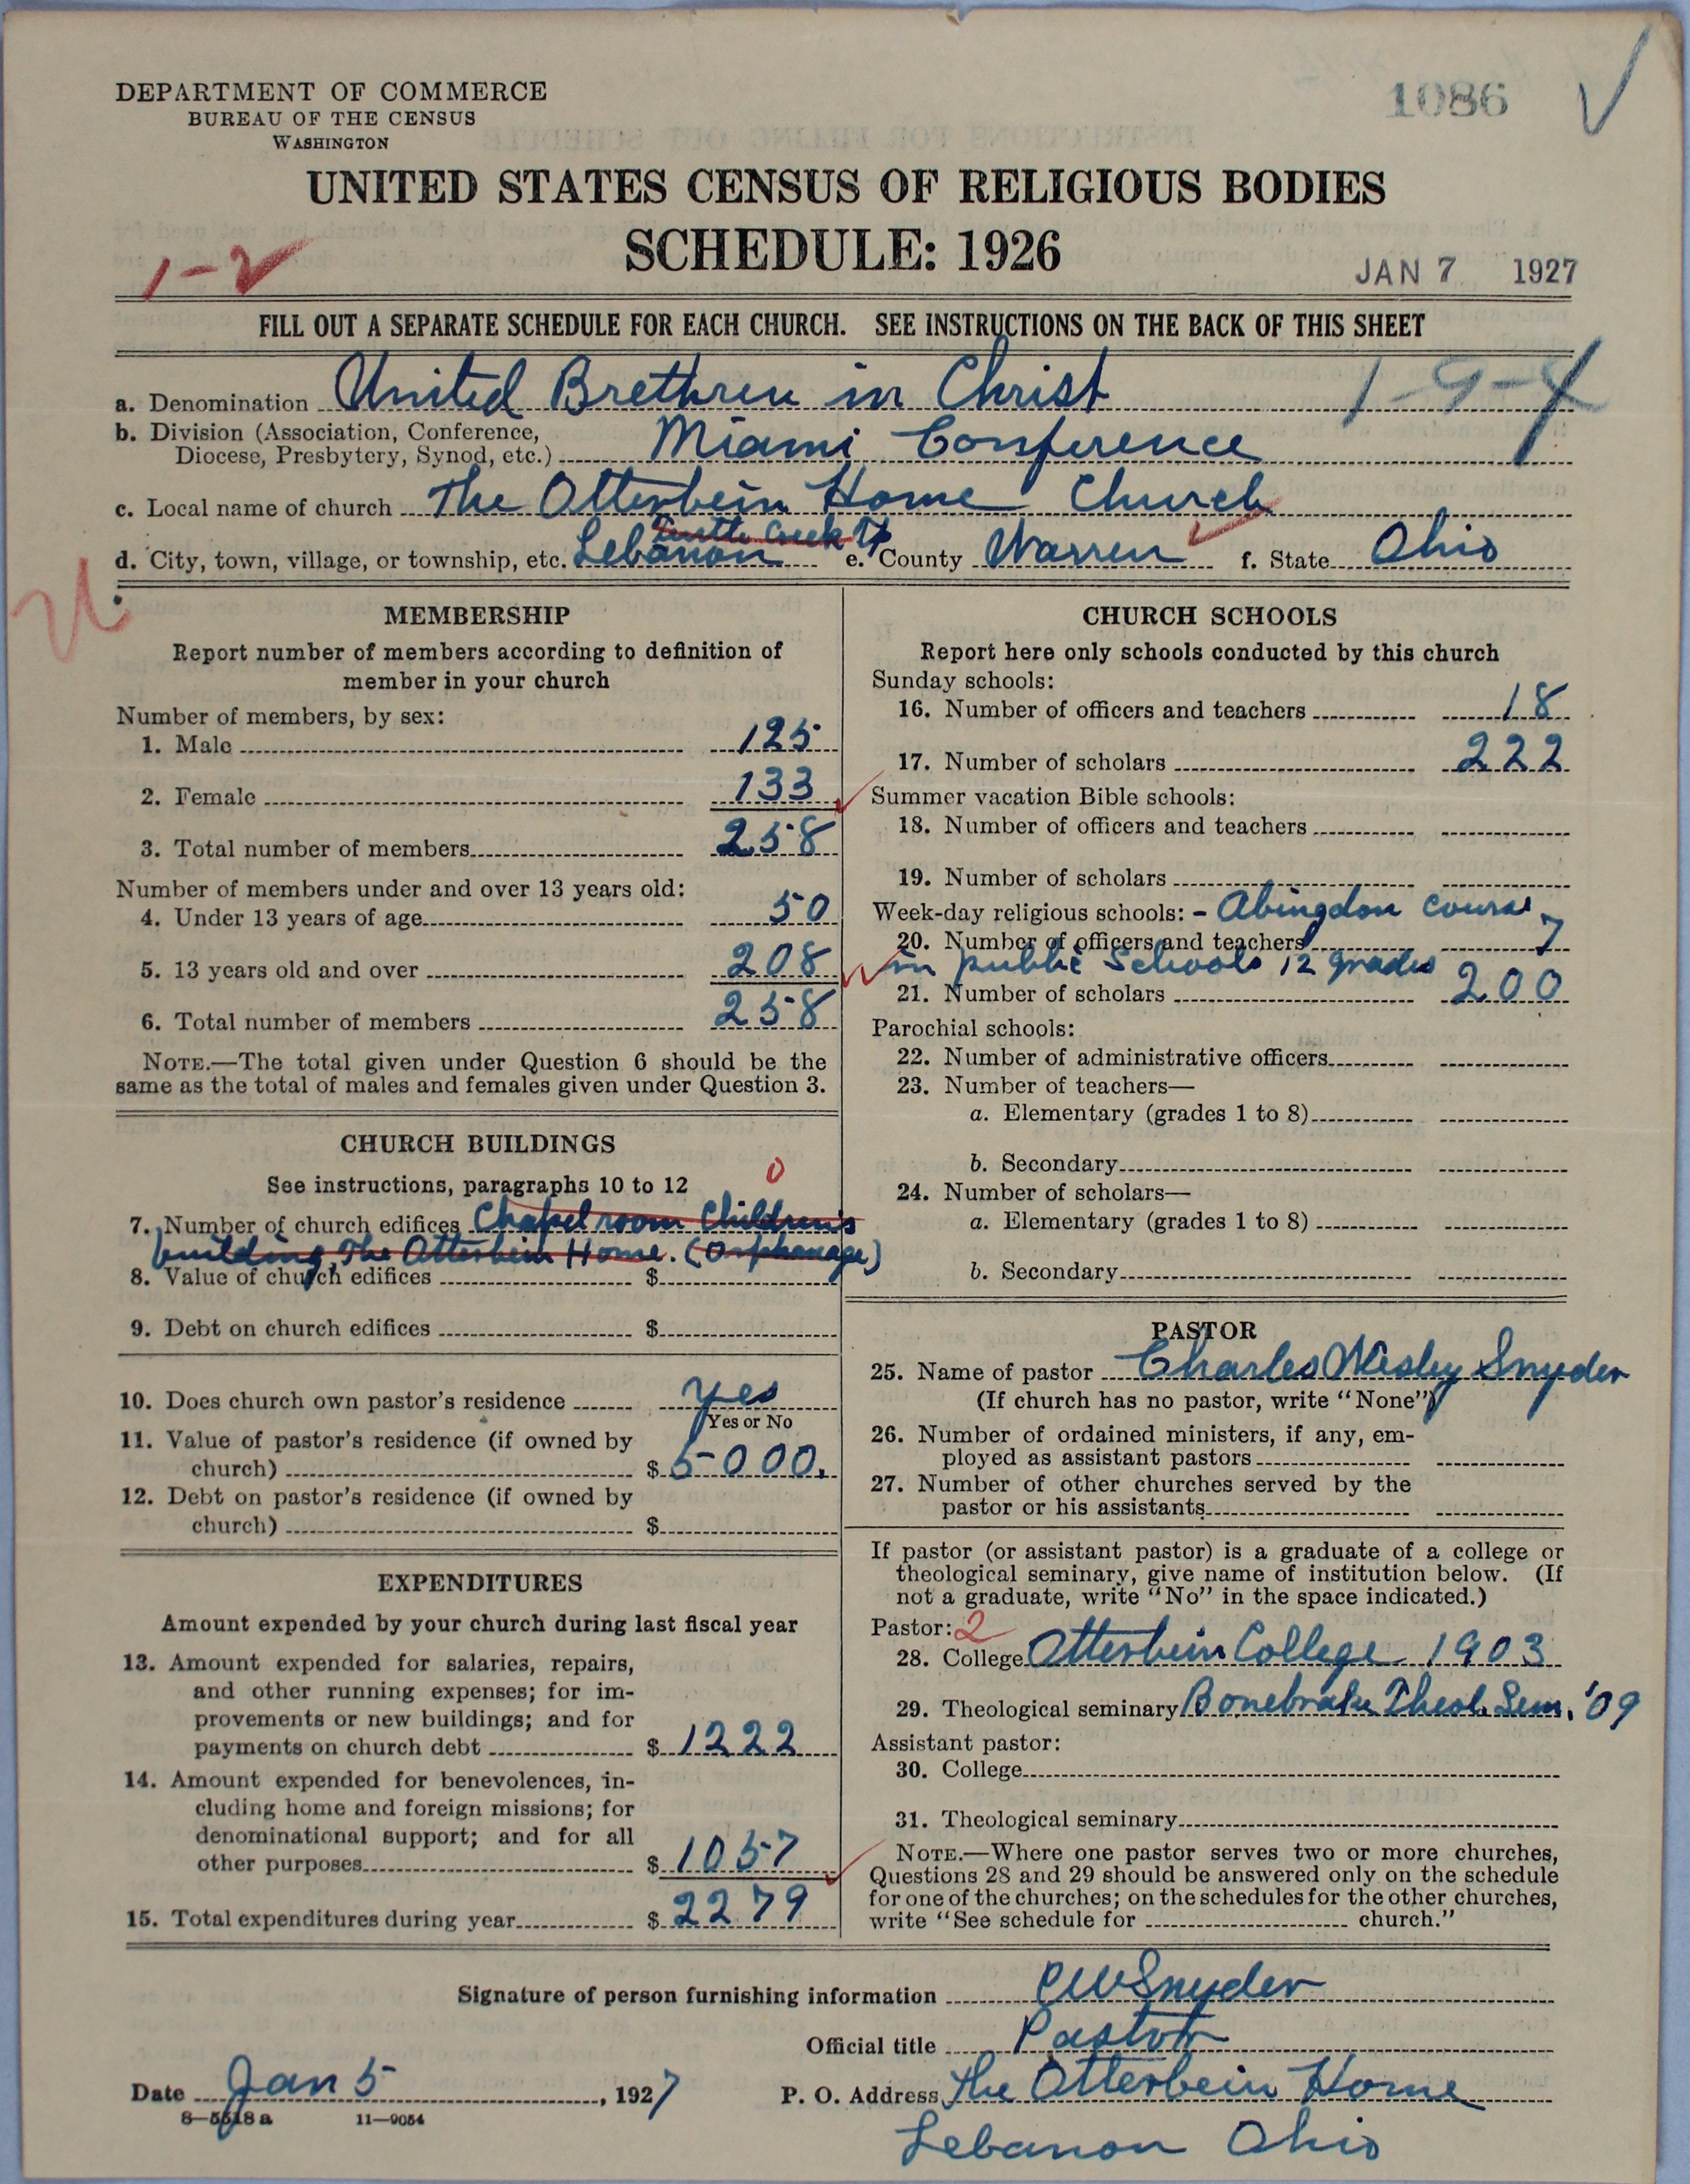 DEPARTMENT OF COMMERCE
BUREAU OF THE CENSUS
WASHINGTON
1086
UNITED STATES CENSUS OF RELIGIOUS BODIES
SCHEDULE: 1926
1-2
JAN 7 1927
FILL OUT A SEPARATE SCHEDULE FOR EACH CHURCH. SEE INSTRUCTIONS ON THE BACK OF THIS SHEET
a. Denomination United Brethren in Christ
b. Division (Association, Conference,
Diocese, Presbytery, Synod, etc.) Miami Conference
c. Local name of church The Otterbein Home Church
Turtle Creek Tp
d. City, town, village, or township, etc. Lebanon e. County Warren f. State Ohio
MEMBERSHIP
Report number of members according to definition of
member in your church
Number of members, by sex:
1. Male 125
2. Female 133
3. Total number of members 258
Number of members under and over 13 years old:
4. Under 13 years of age 50
5. 13 years old and over 208
6. Total number of members 258
NOTE.—The total given under Question 6 should be the
same as the total of males and females given under Question 3.
CHURCH BUILDINGS
See instructions, paragraphs 10 to 12
0
7. Number of church edifices Chapel room Children's
building The Otterbein Home. (Orphanage)
8. Value of church edifices $
9. Debt on church edifices $
10. Does church own pastor's residence yes
Yes or No
11. Value of pastor's residence (if owned by
church) $ 5000.
12. Debt on pastor's residence (if owned by
church) $
EXPENDITURES
Amount expended by your church during last fiscal year
13. Amount expended for salaries, repairs,
and other running expenses; for im-
provements or new buildings; and for
payments on church debt $ 1222
14. Amount expended for benevolences, in-
cluding home and foreign missions; for
denominational support; and for all
other purposes $ 1057
15. Total expenditures during year $ 2279
CHURCH SCHOOLS
Report here only schools conducted by this church
Sunday schools:
16. Number of officers and teachers 18
17. Number of scholars 222
Summer vacation Bible schools:
18. Number of officers and teachers
19. Number of scholars
Week-day religious schools: - Abingdon course
20. Number of officers and teachers 7
in public Schools 12 grades
21. Number of scholars 200
Parochial schools:
22. Number of administrative officers
23. Number of teachers—
a. Elementary (grades 1 to 8)
b. Secondary
24. Number of scholars—
a. Elementary (grades 1 to 8)
b. Secondary
PASTOR
25. Name of pastor Charles Wesley Snyder
(If church has no pastor, write "None")
26. Number of ordained ministers, if any, em-
ployed as assistant pastors
27. Number of other churches served by the
pastor or his assistants
If pastor (or assistant pastor) is a graduate of a college or
theological seminary, give name of institution below. (If
not a graduate, write "No" in the space indicated.)
Pastor: 2
28. College Otterbein College 1903
29. Theological seminary Bonebrake Theol. Sem. '09
Assistant pastor:
30. College
31. Theological seminary
NOTE.—Where one pastor serves two or more churches,
Questions 28 and 29 should be answered only on the schedule
for one of the churches; on the schedules for the other churches,
write "See schedule for church."
Signature of person furnishing information CW Snyder
Official title Pastor
Date Jan 5, 1927 P. O. Address The Otterbein Home
8-5518 a 11-9054
Lebanon Ohio